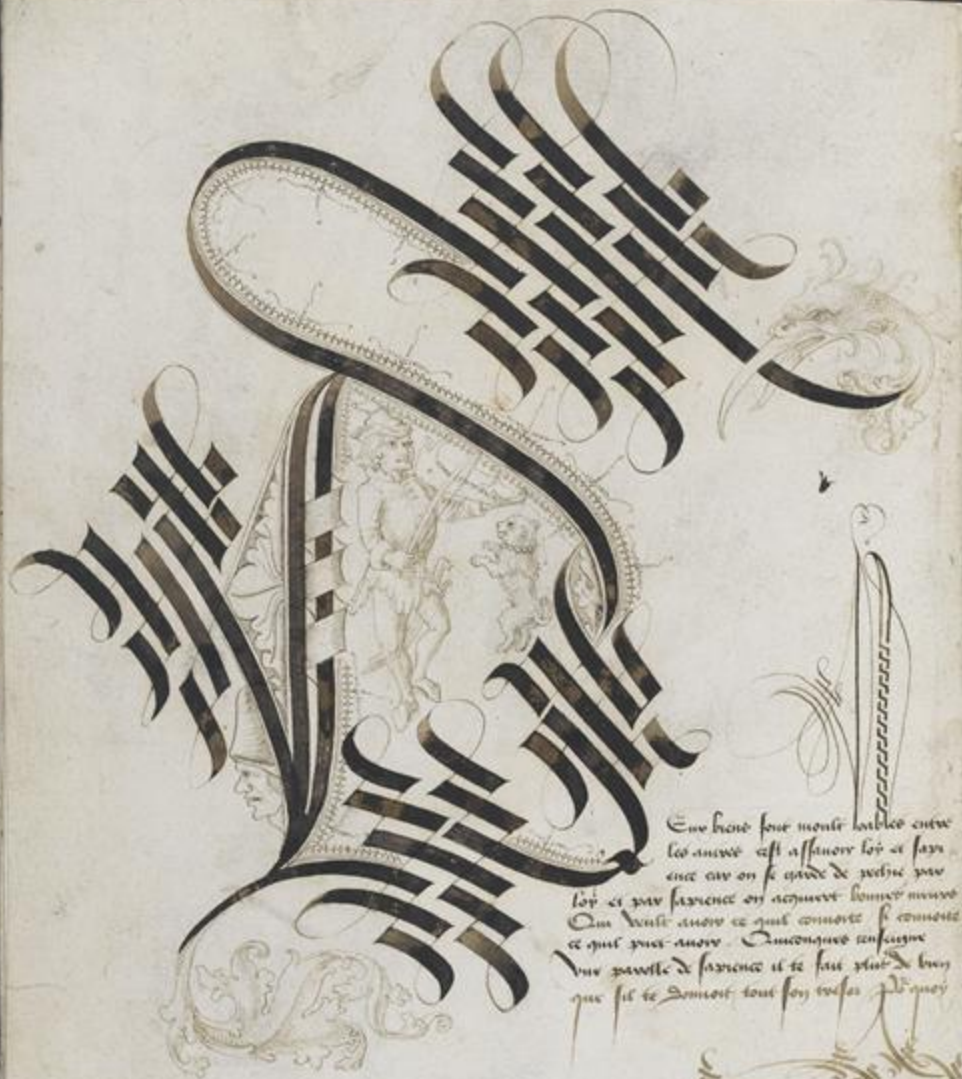 Eux biens sont moult loables entre
les autres cest assavoir loy et sapi
ence car on se garde de pechie par
loy et par sapience on acquiert bonnes meurs
Qui veult avoir ce quil convoite si convoite
ce quil puet avoir . Quiconques tenseigne
une parolle de sapience il te fait plus de bien
que sil te donnoit tout son tresor